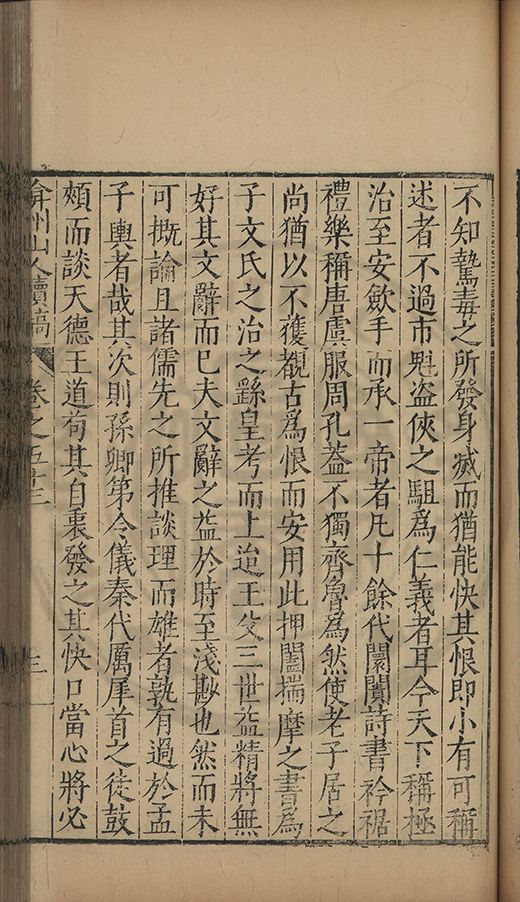 不知鷙毒之所發身滅而猶能快其恨即小有可稱
述者不過市魁盜俠之駔爲仁義者耳今天下稱極
治至安歛手而承一帝者凡十餘代闤闠詩書衿裾
禮樂稱唐虞服周孔葢不獨齊魯爲然使老子居之
尚猶以不獲觀古爲恨而安用此押闔揣摩之書爲
子文氏之治之繇皇考而上迨王父三世葢精將無
好其文辭而已夫文辭之葢於時至淺尠也然而未
可概論且諸儒先之所推談理而雄者孰有過於孟
子輿者哉其次則孫卿第令儀秦代厲犀首之徒鼓
頰而談天德王道茍其自衷發之其快口當心將必
弇州山人續稿 卷之五十三 三